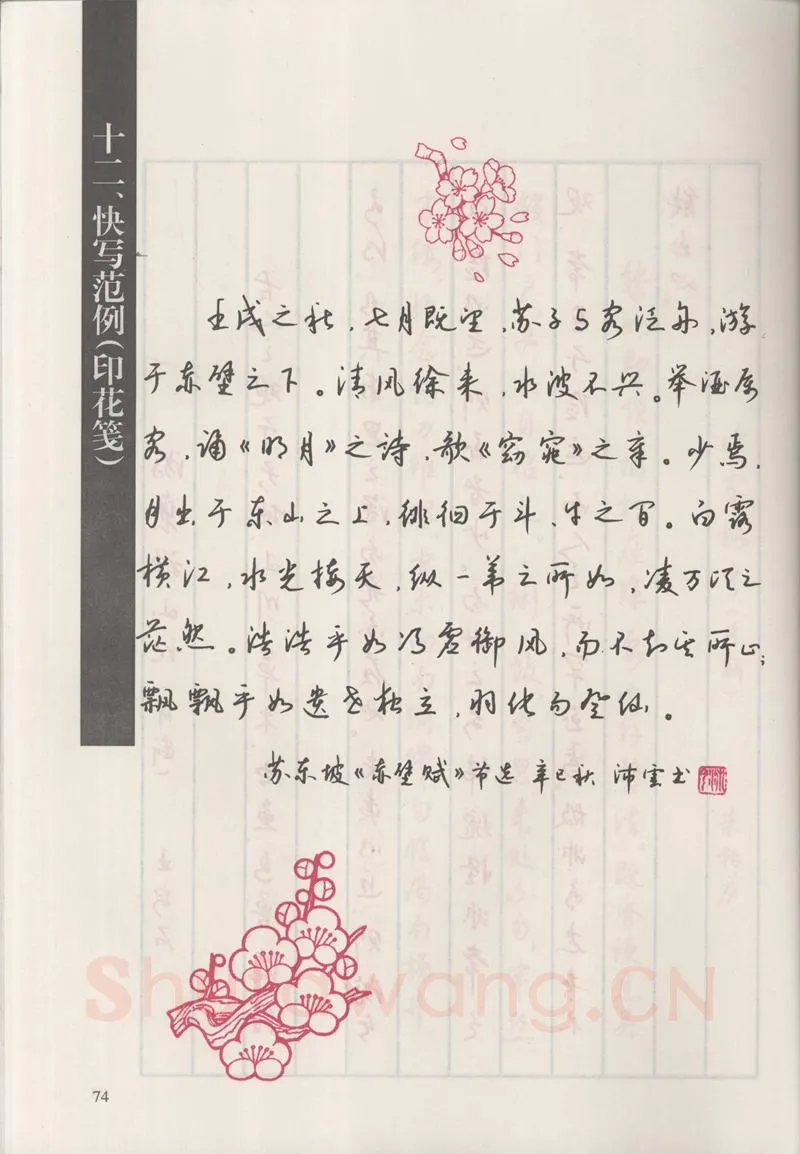 十二、快写范例(印花笺)
壬戌之秋，七月既望，苏子与客泛舟，游
于赤壁之下。清风徐来，水波不兴。举酒属
客，诵《明月》之诗，歌《窈窕》之章。少焉，
月出于东山之上，徘徊于斗、牛之间。白露
横江，水光接天，纵一苇之所如，凌万顷之
茫然。浩浩乎如冯虚御风，而不知其所止；
飘飘乎如遗世独立，羽化而登仙。
苏东坡《赤壁赋》节选 辛巳秋 沛雲书
74